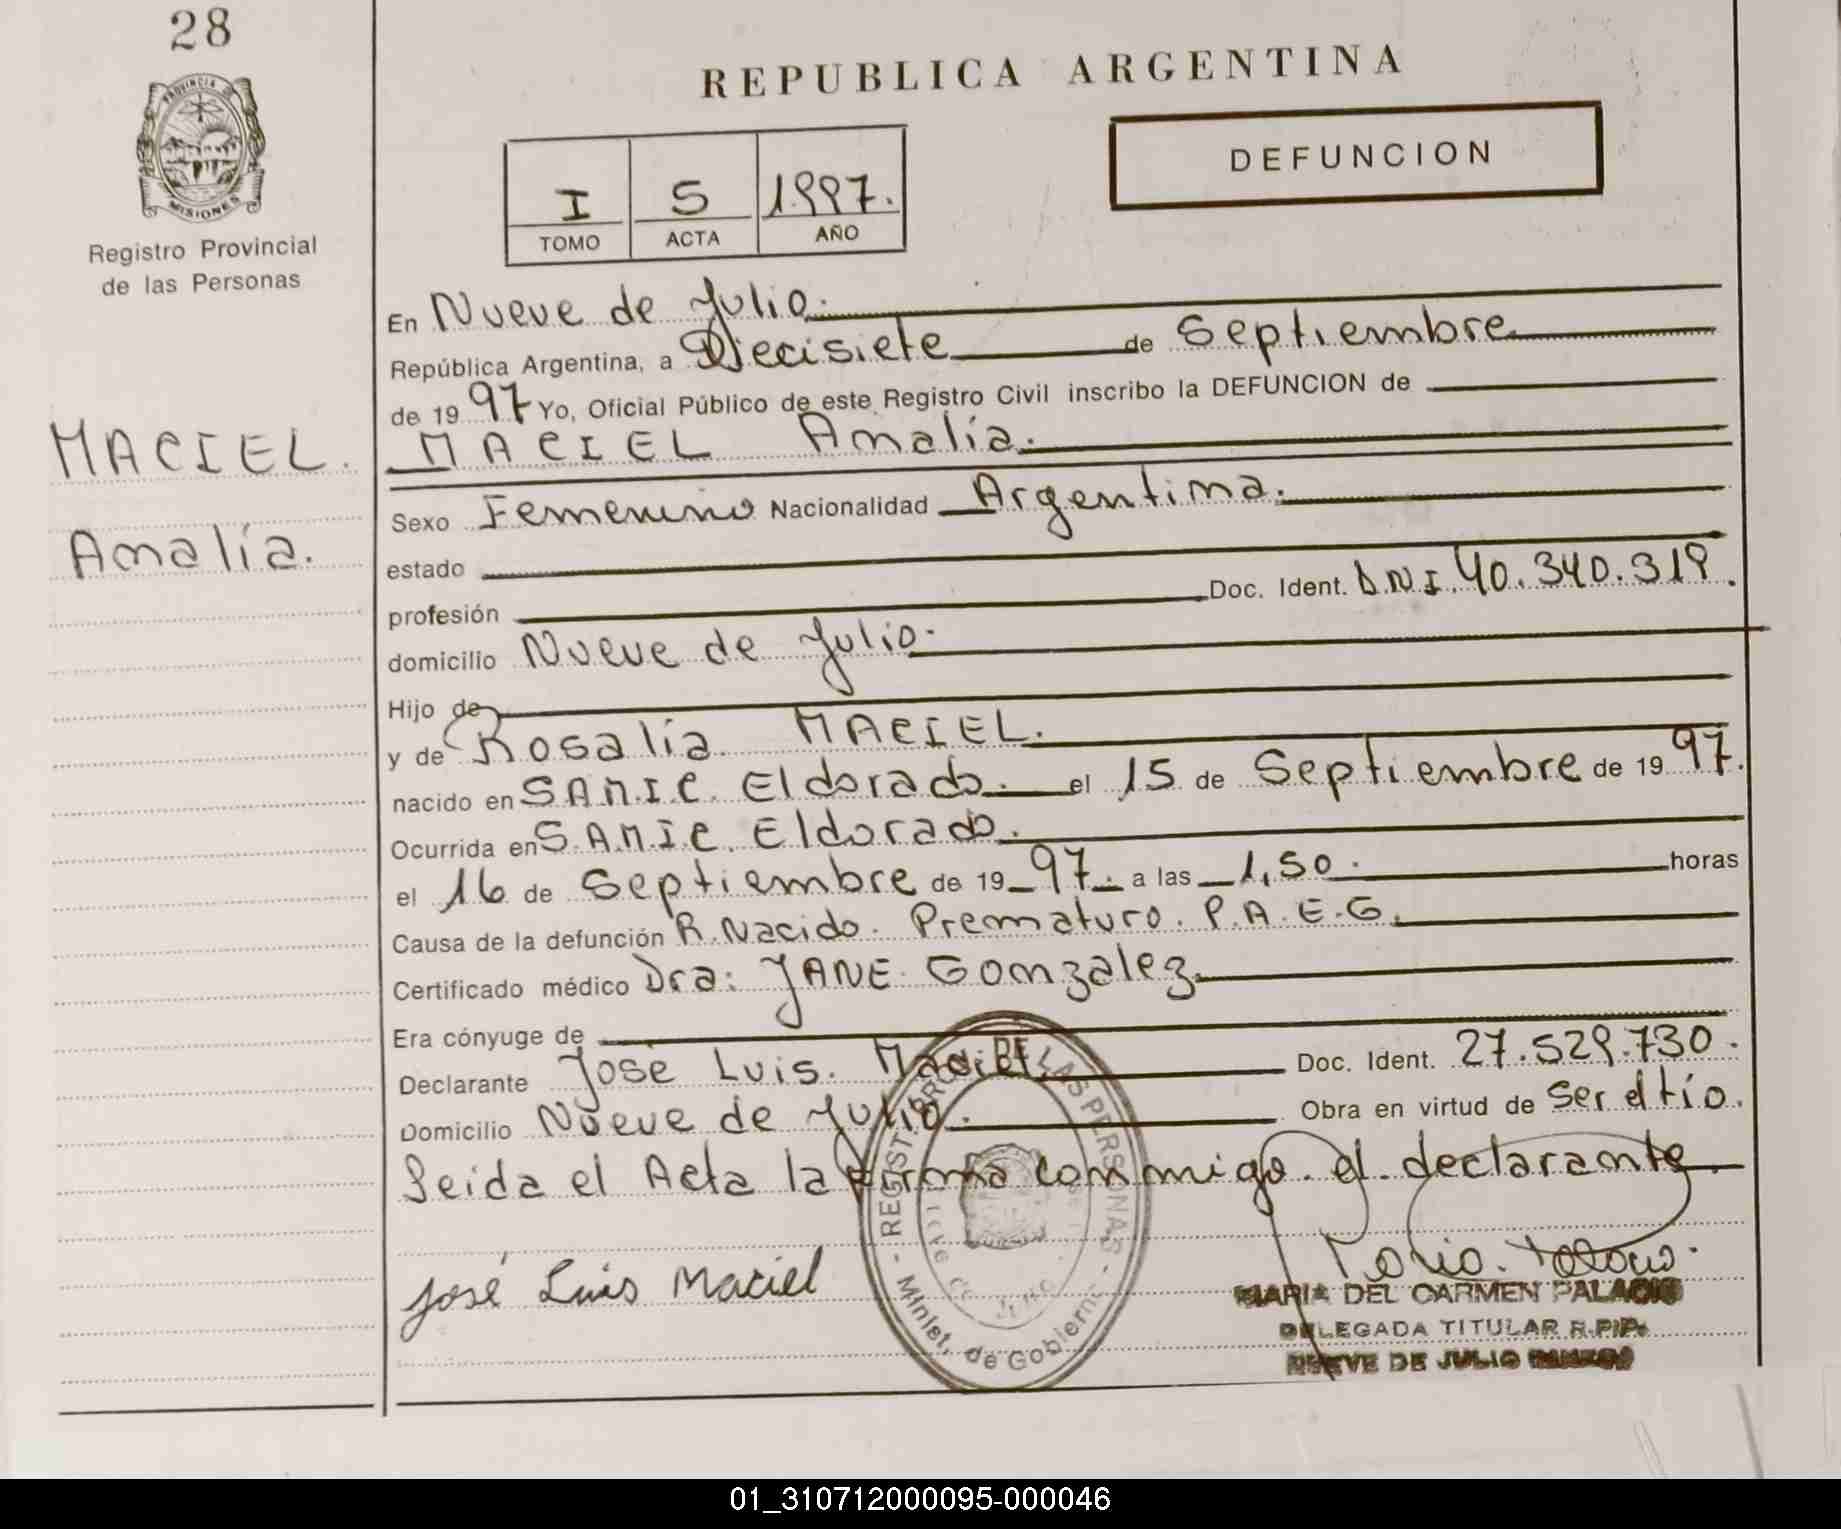 28
PROVINCIA DE
MISIONES
Registro Provincial
de las Personas
MACIEL.
Amalia.
REPUBLICA ARGENTINA
DEFUNCION
I 5 1.997.
TOMO ACTA AÑO
En Nueve de Julio.
República Argentina, a Diecisiete de Septiembre
de 19 97 Yo, Oficial Público de este Registro Civil inscribo la DEFUNCION de
MACIEL Amalia.
Sexo Femenino Nacionalidad Argentina.
estado
profesión Doc. Ident. D.N.I. 40.340.319.
domicilio Nueve de Julio.
Hijo de
y de Rosalia MACIEL.
nacido en S.A.M.I.C. Eldorado. el 15 de Septiembre de 19 97.
Ocurrida en S.A.M.I.C. Eldorado.
el 16 de Septiembre de 19 97. a las 1,50. horas
Causa de la defunción R. Nacido. Prematuro. P.A.E.G.
Certificado médico Dra: JANE Gonzalez
Era cónyuge de
Declarante José Luis. Maciel. Doc. Ident. 27.529.730.
Domicilio Nueve de Julio. Obra en virtud de Ser el tío.
Leida el Acta la firma conmigo. el declarante.
José Luis Maciel
REGIST. PRO. DE LAS PERSONAS
- Minist. de Gobierno -
MARIA DEL CARMEN PALACIO
DELEGADA TITULAR R.P.P.
NUEVE DE JULIO
01_310712000095-000046